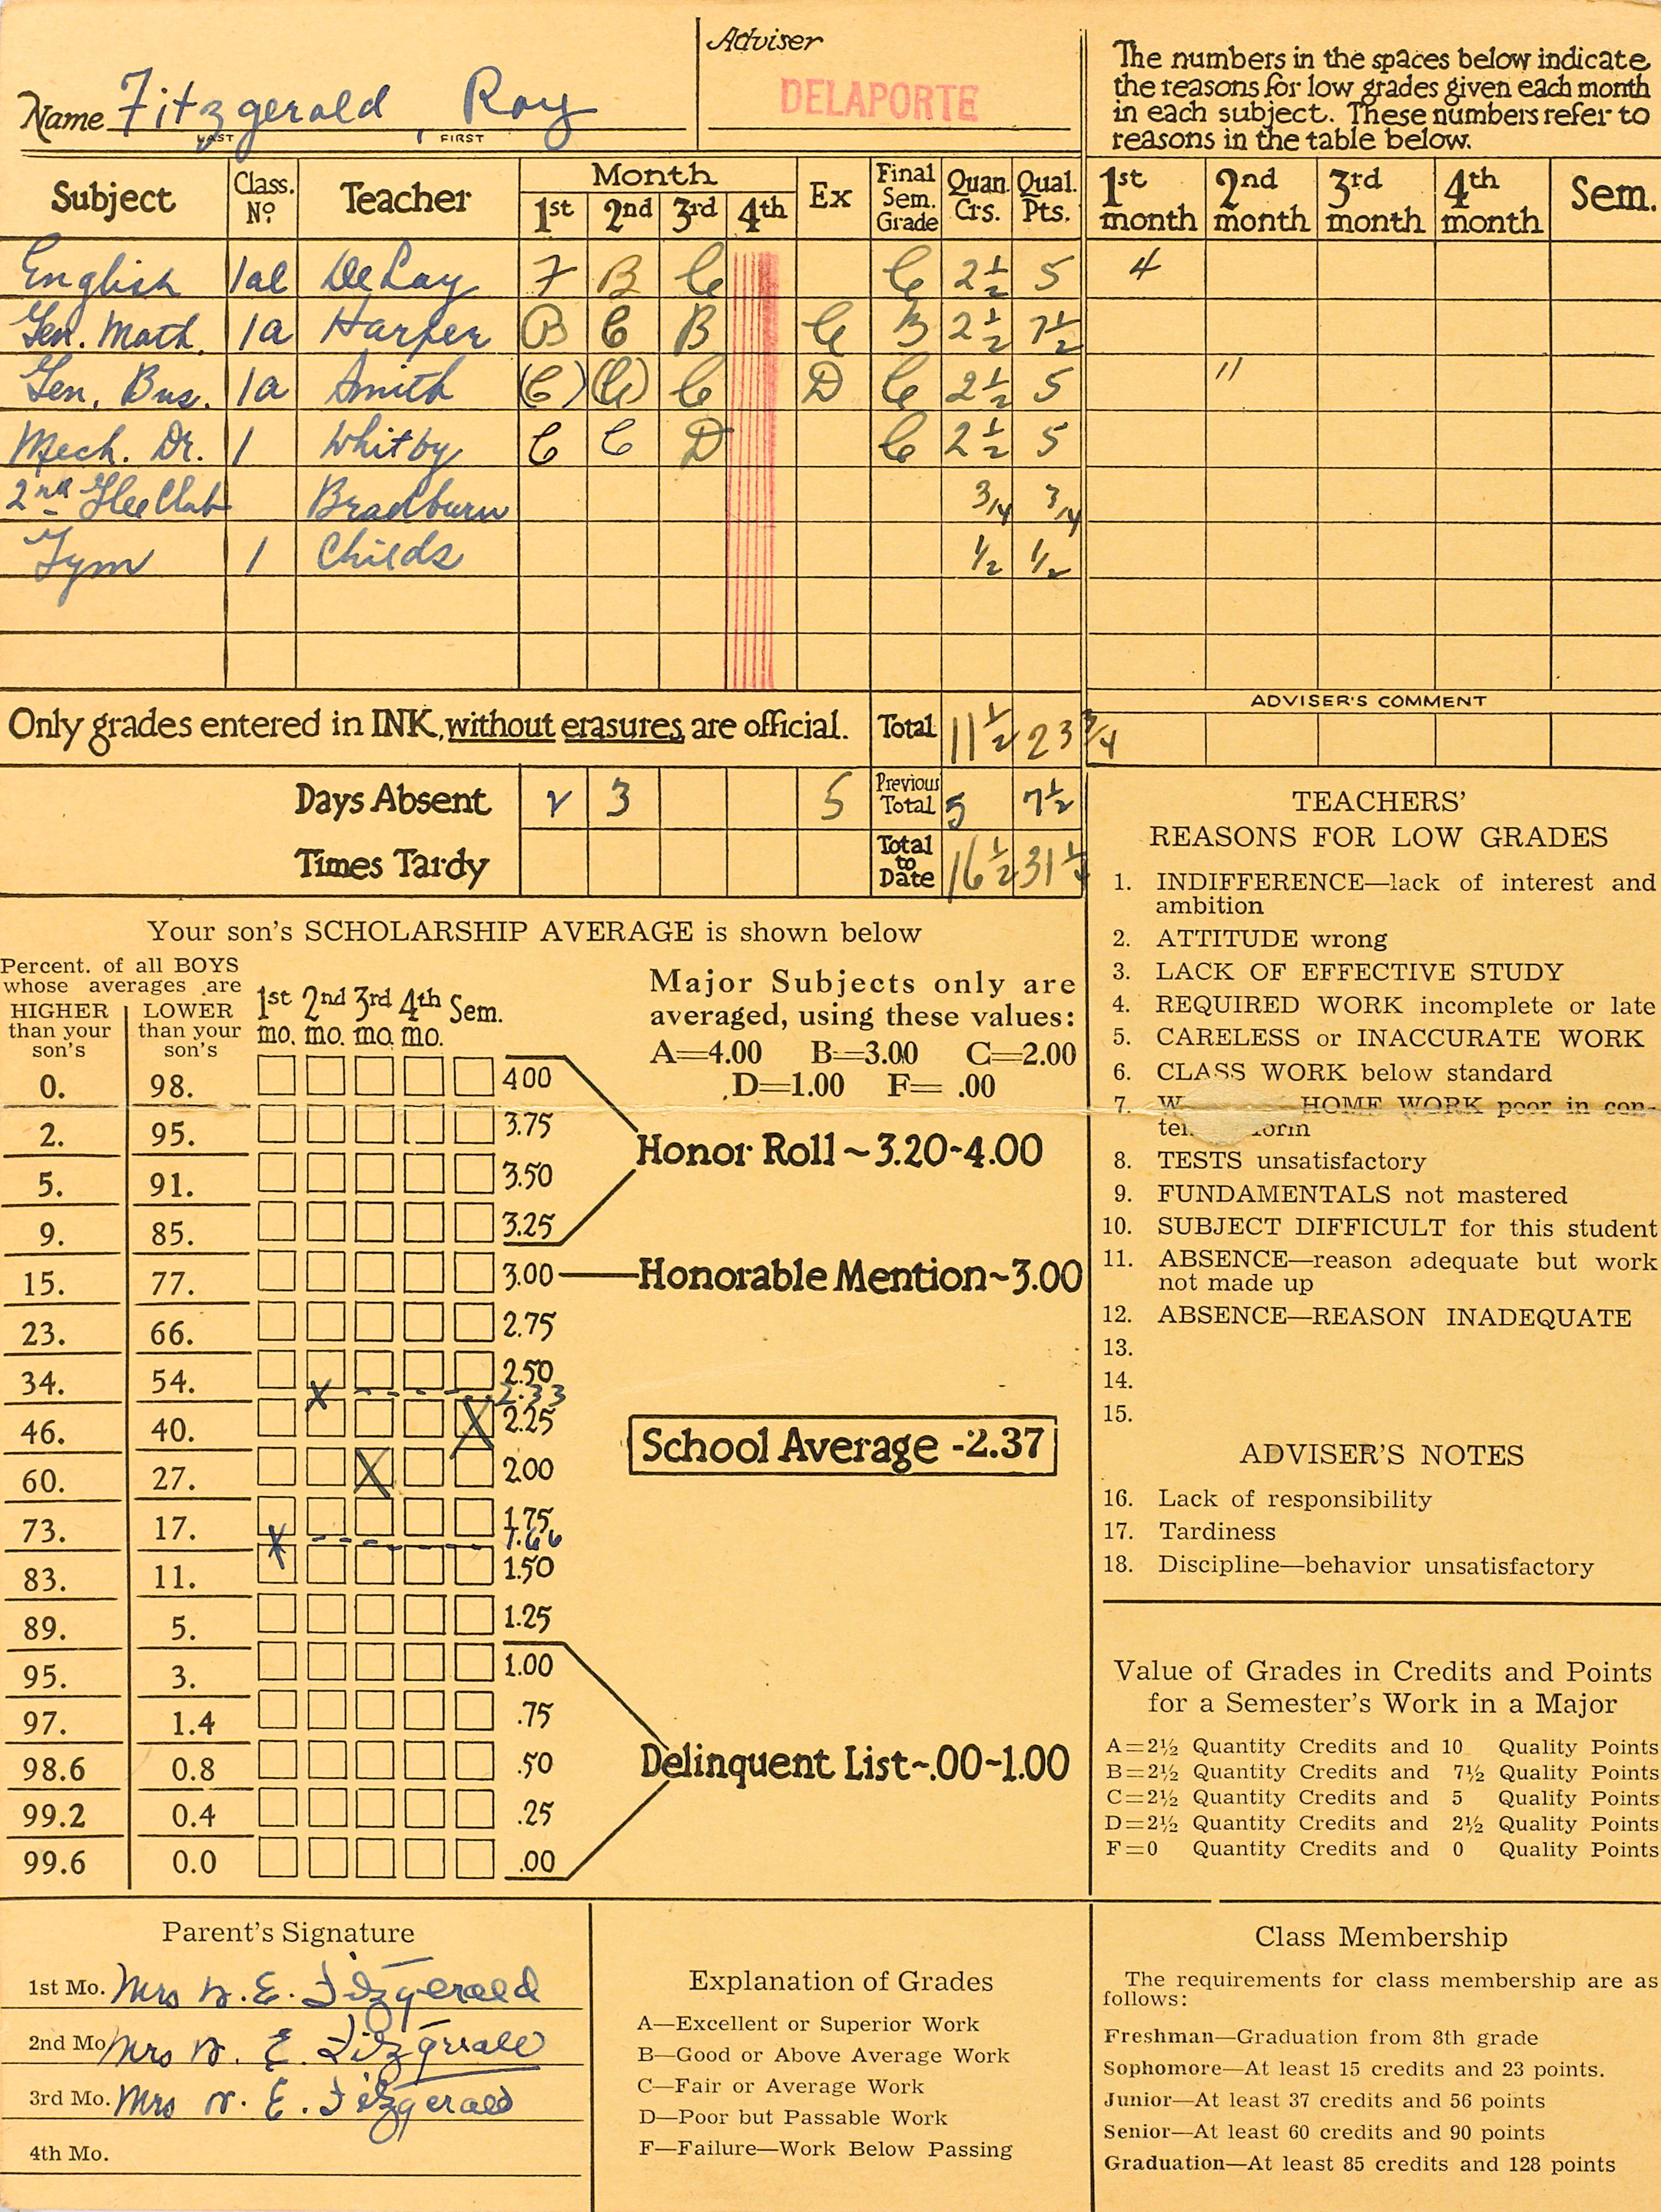 Adviser
Name Fitzgerald, Roy
LAST FIRST
DELAPORTE
The numbers in the spaces below indicate
the reasons for low grades given each month
in each subject. These numbers refer to
reasons in the table below.
Subject Class. No. Teacher Month 1st 2nd 3rd 4th Ex Final Sem. Grade Quan. Crs. Qual. Pts. 1st month 2nd month 3rd month 4th month Sem.
English 1al DeLay F B C C 2 1/2 5 4
Gen. Math. 1a Harper B C B C B 2 1/2 7 1/2
Gen. Bus. 1a Smith (C) (C) C D C 2 1/2 5 11
Mech. Dr. 1 Whitby C C D C 2 1/2 5
2nd Glee Club Bradburn 3/4 3/4
Gym 1 Childs 1/2 1/2
ADVISER'S COMMENT
Only grades entered in INK, without erasures are official. Total 11 1/2 23 3/4
Days Absent 2 3 5 Previous Total 5 7 1/2
Times Tardy Total to Date 16 1/2 31 1/4
Your son's SCHOLARSHIP AVERAGE is shown below
Percent. of all BOYS
whose averages are
HIGHER than your son's LOWER than your son's 1st mo. 2nd mo. 3rd mo. 4th mo. Sem.
Major Subjects only are
averaged, using these values:
A=4.00 B=3.00 C=2.00
D=1.00 F= .00
0. 98. 4.00
2. 95. 3.75
Honor Roll ~ 3.20-4.00
5. 91. 3.50
9. 85. 3.25
15. 77. 3.00 Honorable Mention ~ 3.00
23. 66. 2.75
34. 54. 2.50
X 2.33
46. 40. X 2.25
School Average - 2.37
60. 27. X 2.00
73. 17. 1.75
X 1.66
83. 11. 1.50
89. 5. 1.25
95. 3. 1.00
97. 1.4 .75
98.6 0.8 .50
Delinquent List ~ .00-1.00
99.2 0.4 .25
99.6 0.0 .00
TEACHERS'
REASONS FOR LOW GRADES
1. INDIFFERENCE—lack of interest and
ambition
2. ATTITUDE wrong
3. LACK OF EFFECTIVE STUDY
4. REQUIRED WORK incomplete or late
5. CARELESS or INACCURATE WORK
6. CLASS WORK below standard
7. HOME WORK poor in con-
8. TESTS unsatisfactory
9. FUNDAMENTALS not mastered
10. SUBJECT DIFFICULT for this student
11. ABSENCE—reason adequate but work
not made up
12. ABSENCE—REASON INADEQUATE
13.
14.
15.
ADVISER'S NOTES
16. Lack of responsibility
17. Tardiness
18. Discipline—behavior unsatisfactory
Value of Grades in Credits and Points
for a Semester's Work in a Major
A=2½ Quantity Credits and 10 Quality Points
B=2½ Quantity Credits and 7½ Quality Points
C=2½ Quantity Credits and 5 Quality Points
D=2½ Quantity Credits and 2½ Quality Points
F=0 Quantity Credits and 0 Quality Points
Parent's Signature
1st Mo. Mrs W. E. Fitzgerald
2nd Mo. Mrs W. E. Fitzgerald
3rd Mo. Mrs W. E. Fitzgerald
4th Mo.
Explanation of Grades
A—Excellent or Superior Work
B—Good or Above Average Work
C—Fair or Average Work
D—Poor but Passable Work
F—Failure—Work Below Passing
Class Membership
The requirements for class membership are as
follows:
Freshman—Graduation from 8th grade
Sophomore—At least 15 credits and 23 points.
Junior—At least 37 credits and 56 points
Senior—At least 60 credits and 90 points
Graduation—At least 85 credits and 128 points